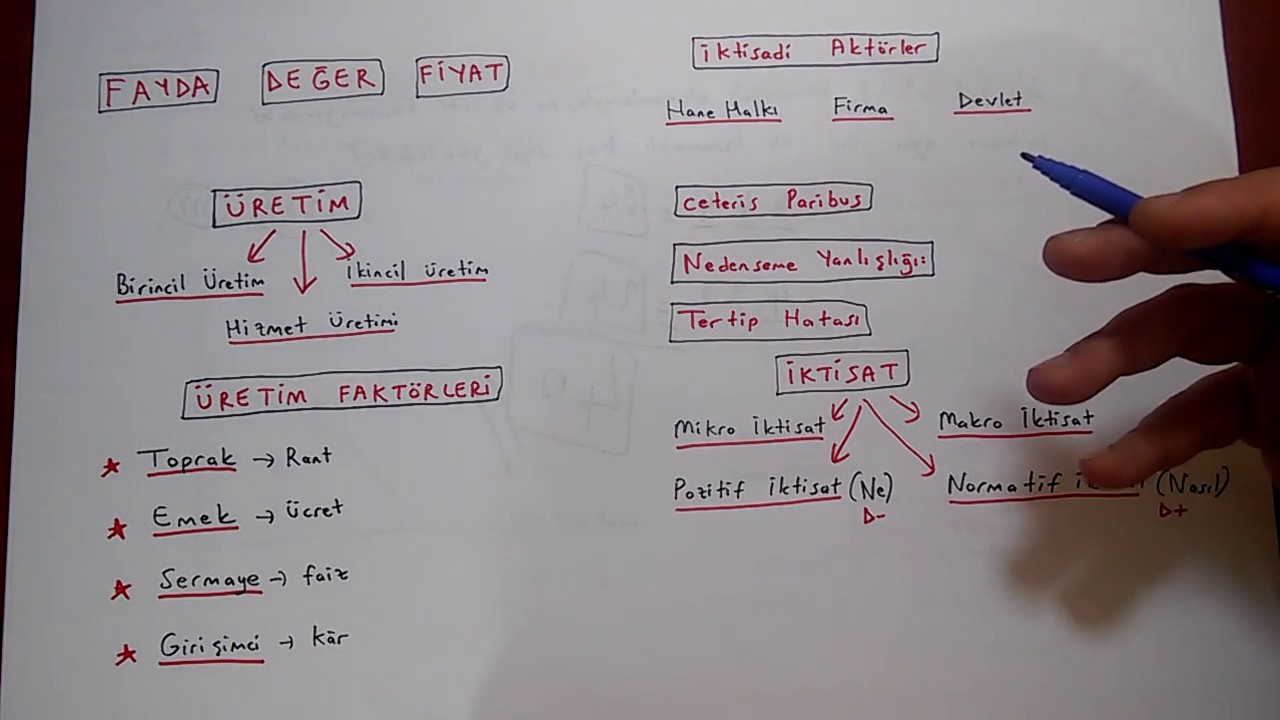 FAYDA DEĞER FİYAT
ÜRETİM
Birincil Üretim İkincil üretim
Hizmet Üretimi
ÜRETİM FAKTÖRLERİ
Toprak → Rant
Emek → Ücret
Sermaye → faiz
Girişimci → kâr
İktisadi Aktörler
Hane Halkı Firma Devlet
Ceteris Paribus
Nedenseme Yanlışlığı:
Tertip Hatası
İKTİSAT
Mikro İktisat Makro İktisat
Pozitif iktisat (Ne) Normatif (Nasıl)
D- D+